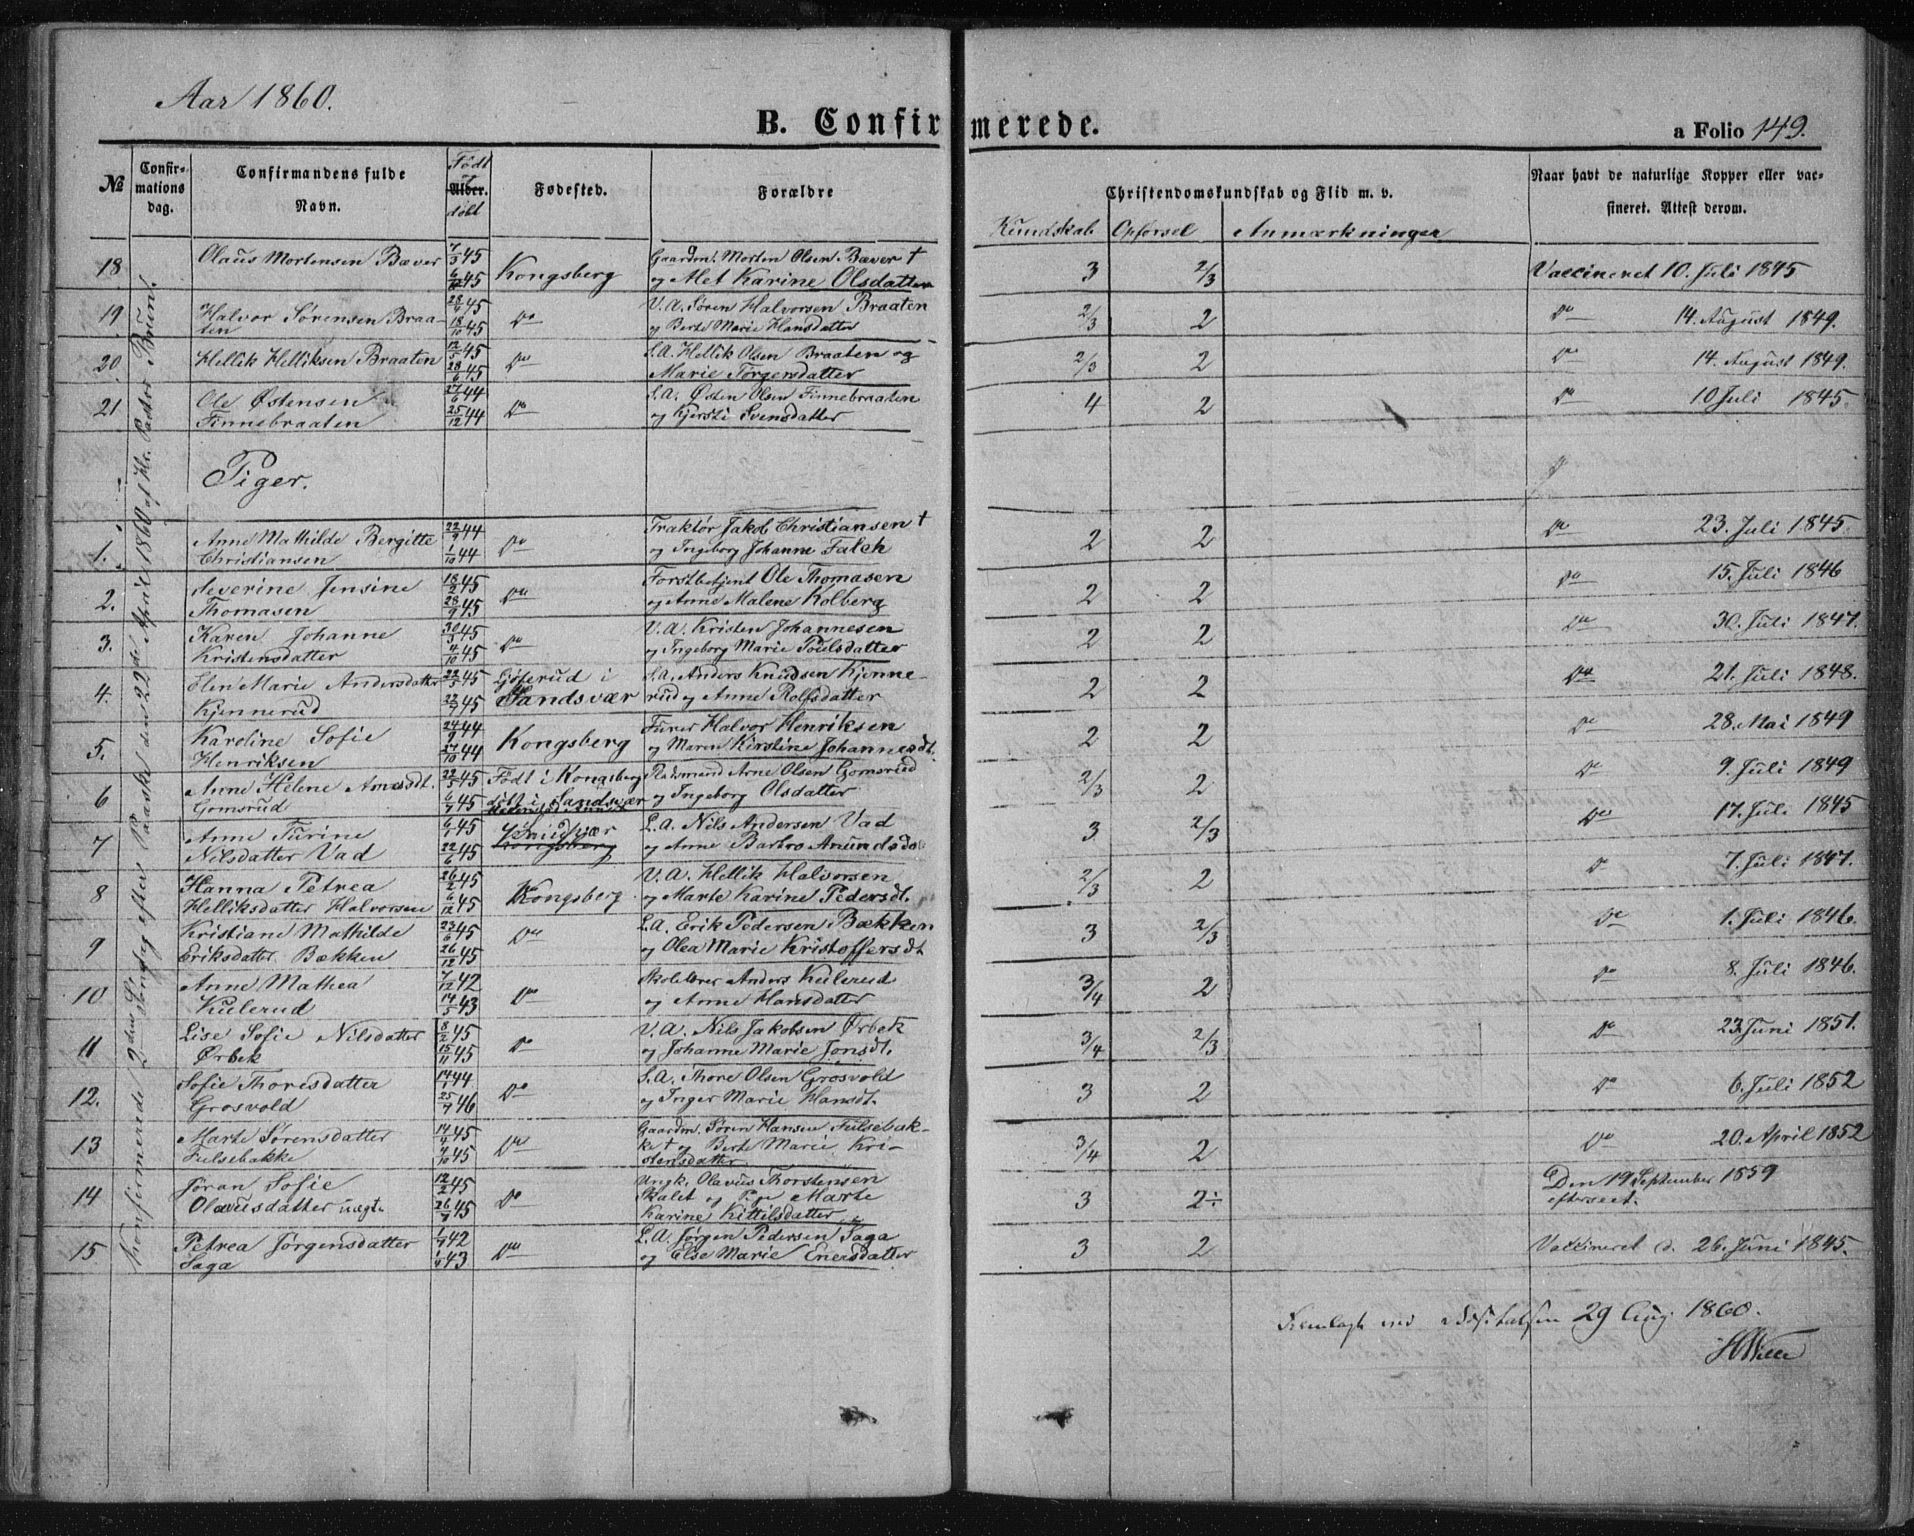 Aar 1860.
B. Confirmerede.
a Folio 149.
№ Confirmations dag. Confirmandens fulde Navn. Født Alder. døbt Fødested. Forældre Christendomskundskab og Flid m. v. Naar havt de naturlige Kopper eller vaccineret. Attest derom.
Kundskab Opførsel Anmærkninger
Konfirmerede 2den Søndag efter Paaske den 22de April 1860 af Hr. Pastor Brun.
18 Olaus Mortensen Bæver 7/3 45 Kongsberg Gaardm. Morten Olsen Bæver † 3 2/3 Vaccineret 10. Juli 1845
6/12 45 og Alet Karine Olsdatter
19 Halvor Sørensen Braa- 28/6 45 Do V.A. Søren Halvorsen Braaten 2/3 2 Do 14. August 1849.
ten 18/10 45 og Berte Marie Hansdatter
20 Hellik Helliksen Braaten 12/5 45 Do S.A. Hellik Olsen Braaten og 2/3 2 Do 14. August 1849.
28/6 45 Marie Torgersdatter
21 Ole Østensen 27/6 44 Do S.A. Østen Olsen Finnebraaten 4 2 Do 10 Juli 1845.
Finnebraaten 25/12 44 og Kjersti Svensdatter
Piger.
1. Anne Mathilde Bergitte 22/9 44 Do Traktør Jakob Christiansen † 2 2 Do 23. Juli 1845.
Christiansen 1/10 44 og Ingeborg Johanne Falch
2. Severine Jensine 18/2 45 Do Forstbetjent Ole Thomasen 2 2 Do 15. Juli 1846
Thomasen 28/9 45 og Anne Malene Kolberg
3. Karen Johanne 30/3 45 Do V.A. Kristen Johannesen 2 2 Do 30. Juli 1847.
Kristensdatter 4/10 45 og Ingeborg Marie Poulsdatter
4. Elen Marie Andersdatter 22/5 45 Gjøferud i S.A. Anders Knudsen Kjenne- 2 2 Do 21. Juli 1848.
Kjennerud 22/7 45 Sandsvær rud og Anne Rolfsdatter
5. Karoline Sofie 24/9 44 Kongsberg Furer Halvor Henriksen 2 2 Do 28. Mai 1849
Henriksen 27/10 44 og Maren Kirstine Johannesdt.
6 Anne Helene Arnesdt. 22/5 45 Født i Kongsberg Rodsmand Arne Olsen Gomsrud 2/3 2 Do 9. Juli 1849
Gomsrud 6/7 45 døbt i Sandsvær og Ingeborg Olsdatter
7 Anne Turine 6/1 45 Kongsberg L.A. Nils Andersen Vad 3 2/3 Do 17. Juli 1845
Nilsdatter Vad 22/6 45 og Anne Barbro Anundsdt.
8 Hanna Petrea 26/2 45 Kongsberg V.A. Hellik Halvorsen 2/3 2 Do 7. Juli 1847.
Helliksdatter Halvorsen 6/12 45 og Marte Karine Pedersdt.
9 Kristiane Mathilde 23/6 45 Do L.A. Erik Pedersen Bækken 3 2/3 Do 1. Juli 1846.
Eriksdatter Bækken 26/12 45 og Olea Marie Kristoffersdt
10 Anne Mathea 7/12 42 Do Skolelærer Anders Kulerud 3/4 2 Do 8. Juli 1846.
Kulerud 14/5 43 og Anne Hansdatter
11 Lise Sofie Nilsdatter 8/2 45 Do V.A. Nils Jakobsen Ørbek 3/4 2/3 Do 23 Juni 1851.
Ørbek 15/11 45 og Johanne Marie Jonsdt.
12. Sofie Thoresdatter 14/1 44 Do S.A. Thore Olsen Grosvold 3 2 Do 6. Juli 1852
Grosvold 25/7 46 og Inger Marie Hansdt.
13 Marte Sørensdatter 14/9 45 Do Gaardm. Søren Hansen Fulsebak- 3/4 2 Do 20. April 1852
Fulsebakke 4/10 45 ke † og Berte Marie Kri-
stensdatter
14 Jøran Sofie 12/2 45 Do Ungk. Olavus Thorstensen 3 2÷ Den 19 September 1859
Olavusdatter uægt. 26/7 45 Skalet og Pige Marte efterseet.
Karine Kittilsdatter
15. Petrea Jørgensdatter 1/7 42 Do L.A. Jørgen Pedersen Saga 3 2 Vaccineret d. 26. Juni 1845.
Saga 1/4 43 og Else Marie Enersdatter
Fremlagt ved Visitatsen 29 Aug 1860.